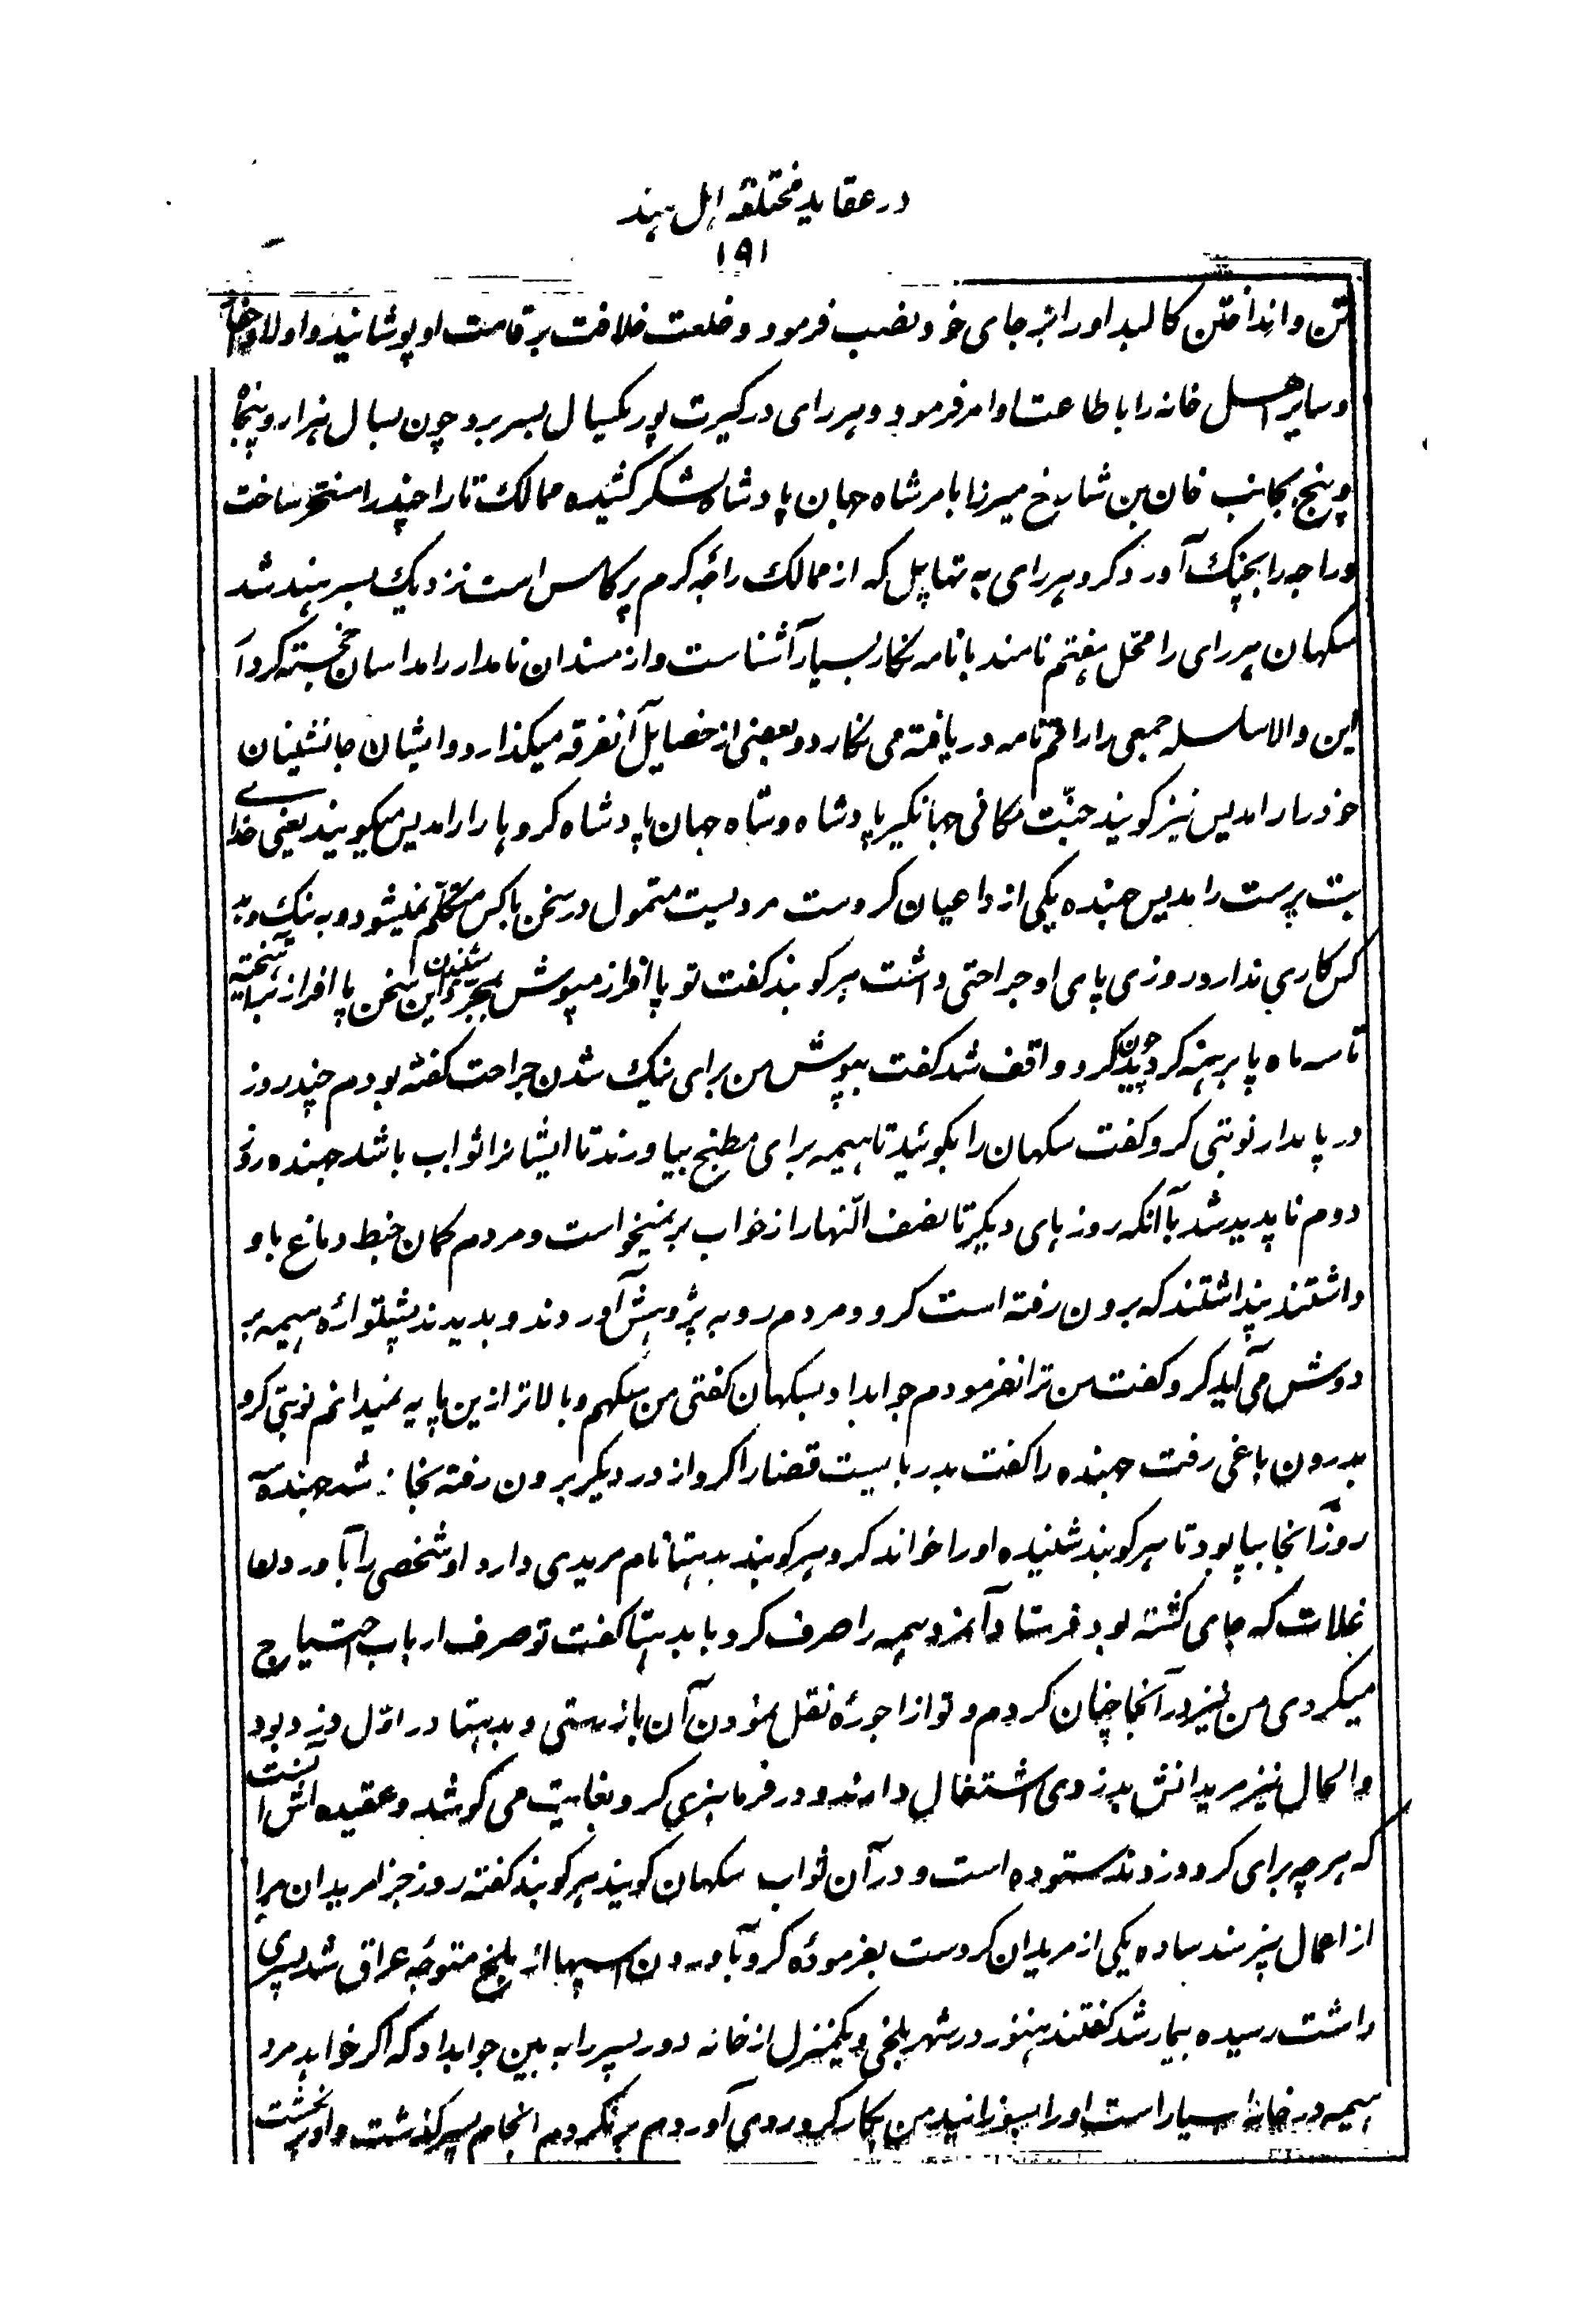 در عقاید مختلفه اهل هند
۱۹۱
تن و انداختن کالبد او را بر جای خود نصب فرمود و خلعت خلافت بر قامت او پوشانید و اولاد خود
و سایر اهل خانه را باطاعت او امر فرمود و هررای در کیرت پور یکسال بسر برد و چون بسال هزار و پنجاه
و پنج نجابت خان بن شاهرخ میرزا بامر شاه جهان پادشاه لشکر کشیده ممالک تاراچند را مسخر ساخت
و راجه را بچنگ آورد کرو هررای به تهاپل که از ممالک راجه کرم پرکاس است نزدیک بسرهند شد
سکهان هررای را محل هفتم نامند با نامه نکار بسیار آشناست و از مسندان نامدار رامداسان خجسته کردا
این والا سلسله جمعی را راقم نامه دریافته می نکارد و بعضی از خصایل آنفرقه میکذارد و ایشان جانشینان
خود را رامدیس نیز کویند جنت مکانی جهانکیر پادشاه و شاه جهان پادشاه کروها را رامدیس میکویند یعنی خدای
بت پرست رامدیس جهنده یکی از داعیان کروست مردیست متمول در سخن با کس متکلم نمیشود و به نیک و بد
کس کاری ندارد روزی پای او جراحتی داشت هرکوبند کفت تو پاافراز مپوش بمجرد شنیدن این سخن پا افراز بینداخته
تا سه ماه پا برهنه کردید چون کرو واقف شد کفت بپوش من برای نیک شدن جراحت کفته بودم چند روز
در پا مدار نوبتی کرو کفت سکهان را بکوئید تا هیمه برای مطبخ بیاورند تا ایشانرا ثواب باشد جهنده روز
دوم ناپدید شد با آنکه روزهای دیکر تا نصف النهار از خواب برنمیخواست و مردم کمان خبط دماغ باو
داشتند پنداشتند که برون رفته است کرو و مردم رو به پژوهش آوردند و بدیدند پشتواره هیمه بر
دوش می آید کرو کفت من ترا نفرمودم جوابداد بسکهان کفتی من سکهم و بالاتر ازین پایه نمیدانم نوبتی کرو
بدرون باغی رفت جهنده را کفت بدر بایست قضا را کرو از در دیکر برون رفته بخانه شد جهنده سه
روز آنجا بپا بود تا هرکوبند شنیده او را خواند کرو هرکوبند بدهتا نام مریدی دارد او شخصی را بآوردن
غلات که جای کشته بود فرستاد آنمرد همه را صرف کرد با بدهتا کفت تو صرف ارباب احتیاج
میکردی من نیز در آنجا چنان کردم و تو از اجوره نقل نمودن آن بازرستی و بدهتا در اول دزد بود
والحال نیز مریدانش بدزدی اشتغال دارند و در فرمانبری کرو بغایت می کوشد و عقیده اش آنست
که هر چه برای کرو دزدند ستوده است و در آن ثواب سکهان کویند هرکوبند کفته روز جزا مریدان مرا
از اعمال نپرسند ساده یکی از مریدان کروست بفرموده کرو بآوردن اسپها از بلخ متوجه عراق شد پسری
داشت رسیده بیمار شد کفتند هنوز در شهر بلخی و یکمنزل از خانه دور پسر را به بین جوابداد که اکر خواهد مرد
هیمه در خانه بسیار است او را بسوزانید من بکار کرو روی آوردم برنکردم انجام پسر کذشت و او برنکشت